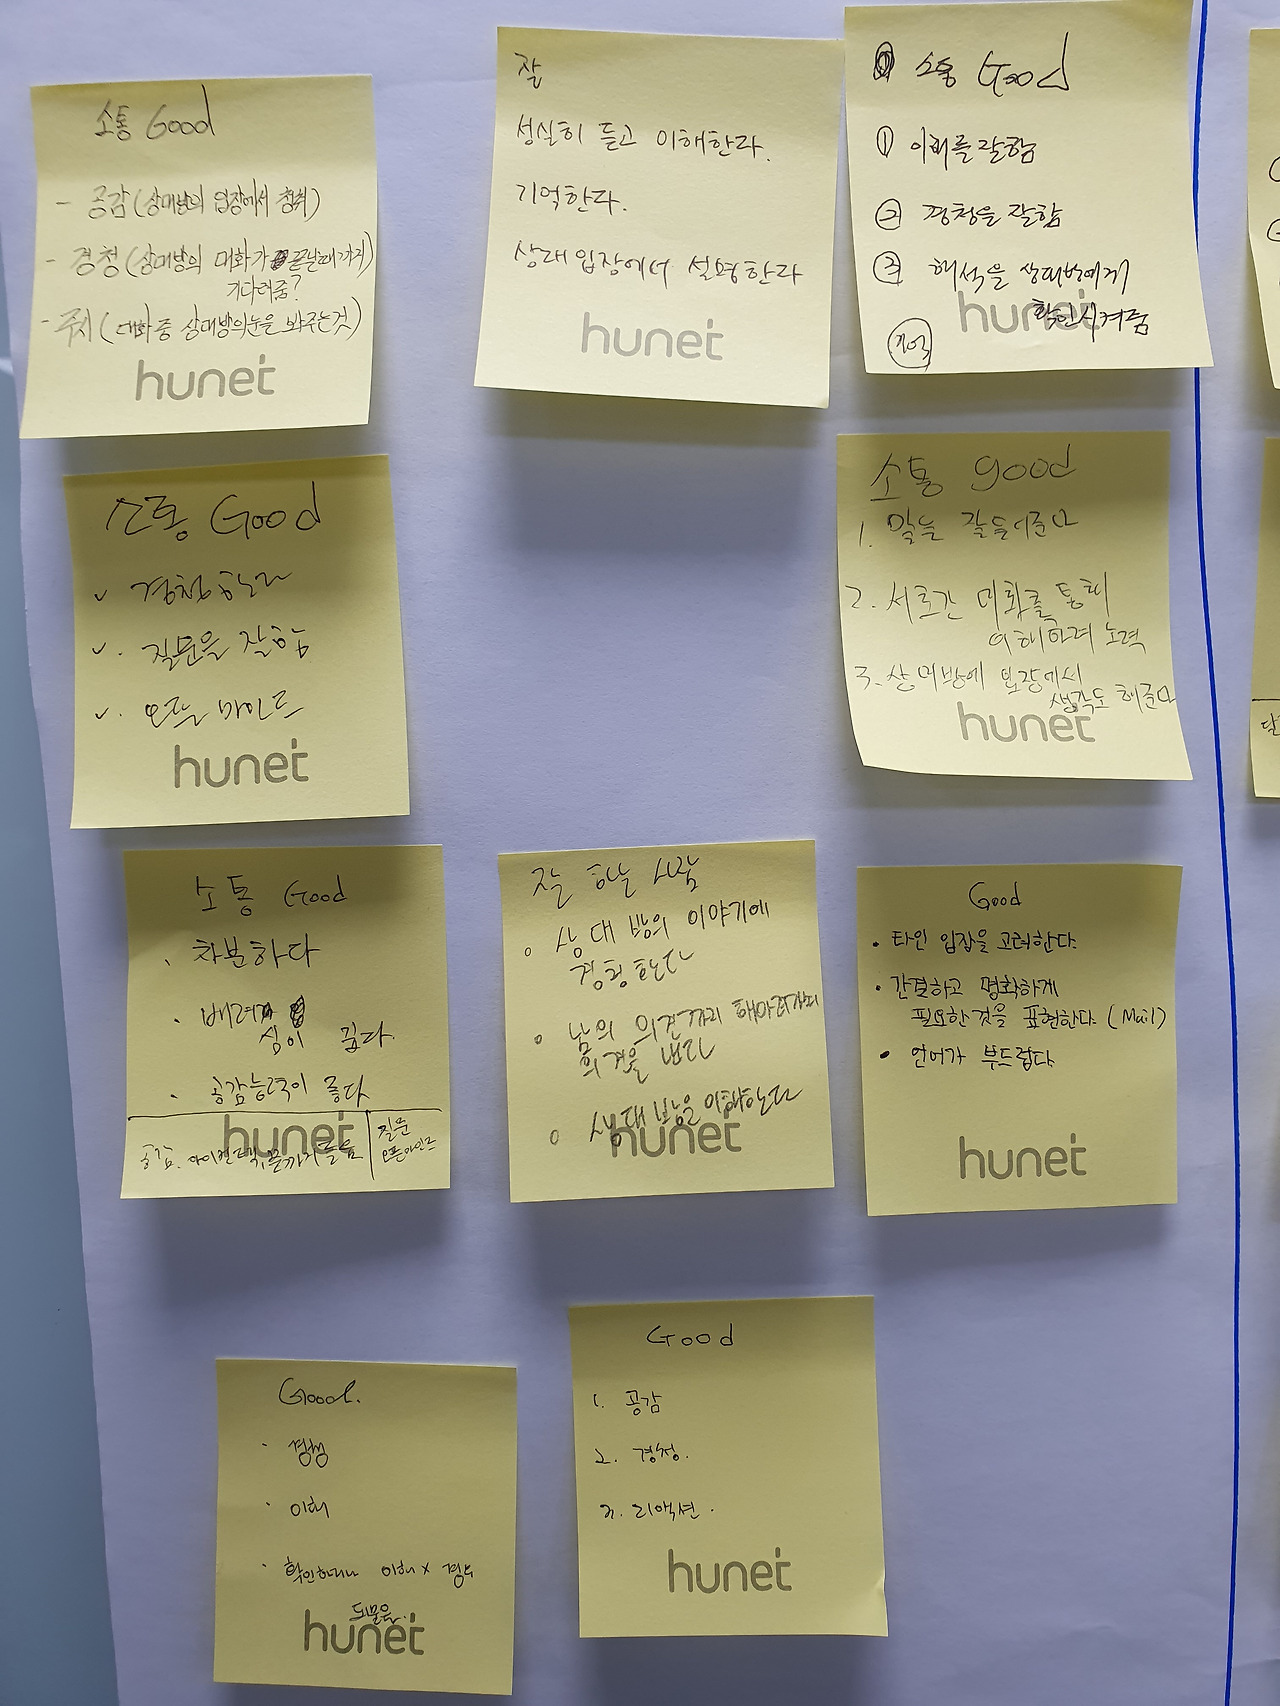 소통 Good
- 공감(상대방의 입장에서 청취)
- 경청(상대방의 대화가 끝날때까지
기다려줌?
- 주시(대화중 상대방의눈을 봐주는것)
hunet
잘
성실히 듣고 이해한다.
기억한다.
상대입장에서 설명한다
hunet
소통 Good
① 이해를잘함
② 경청을 잘함
③ 해석을 상대방에게
확인시켜줌
기억
hunet
소통 Good
✓ 경청한다
✓. 질문을 잘함
✓. 오픈 마인드
hunet
소통 good
1. 말을 잘들어준다
2. 서로간 대화를 통해
이해하려 노력
3. 상대방에 입장에서
생각도 해준다
hunet
소통 Good
· 차분하다
· 배려
심이 깊다.
· 공감능력이 좋다
공감. 아이컨택, 끝까지들음
질문
오픈마인드
hunet
잘 하는 사람
○ 상대 방의 이야기에
경청한다
○ 남의 의견까지 헤아려
의견을 낸다
○ 상대방을이해한다
hunet
Good
· 타인 입장을 고려한다.
· 간결하고 명확하게
필요한것을 표현한다. (Mail)
· 언어가 부드럽다.
hunet
Good.
· 경청
· 이해
· 확인하려나 이해x 경우
되물음.
hunet
Good
1. 공감
2. 경청.
3. 리액션.
hunet